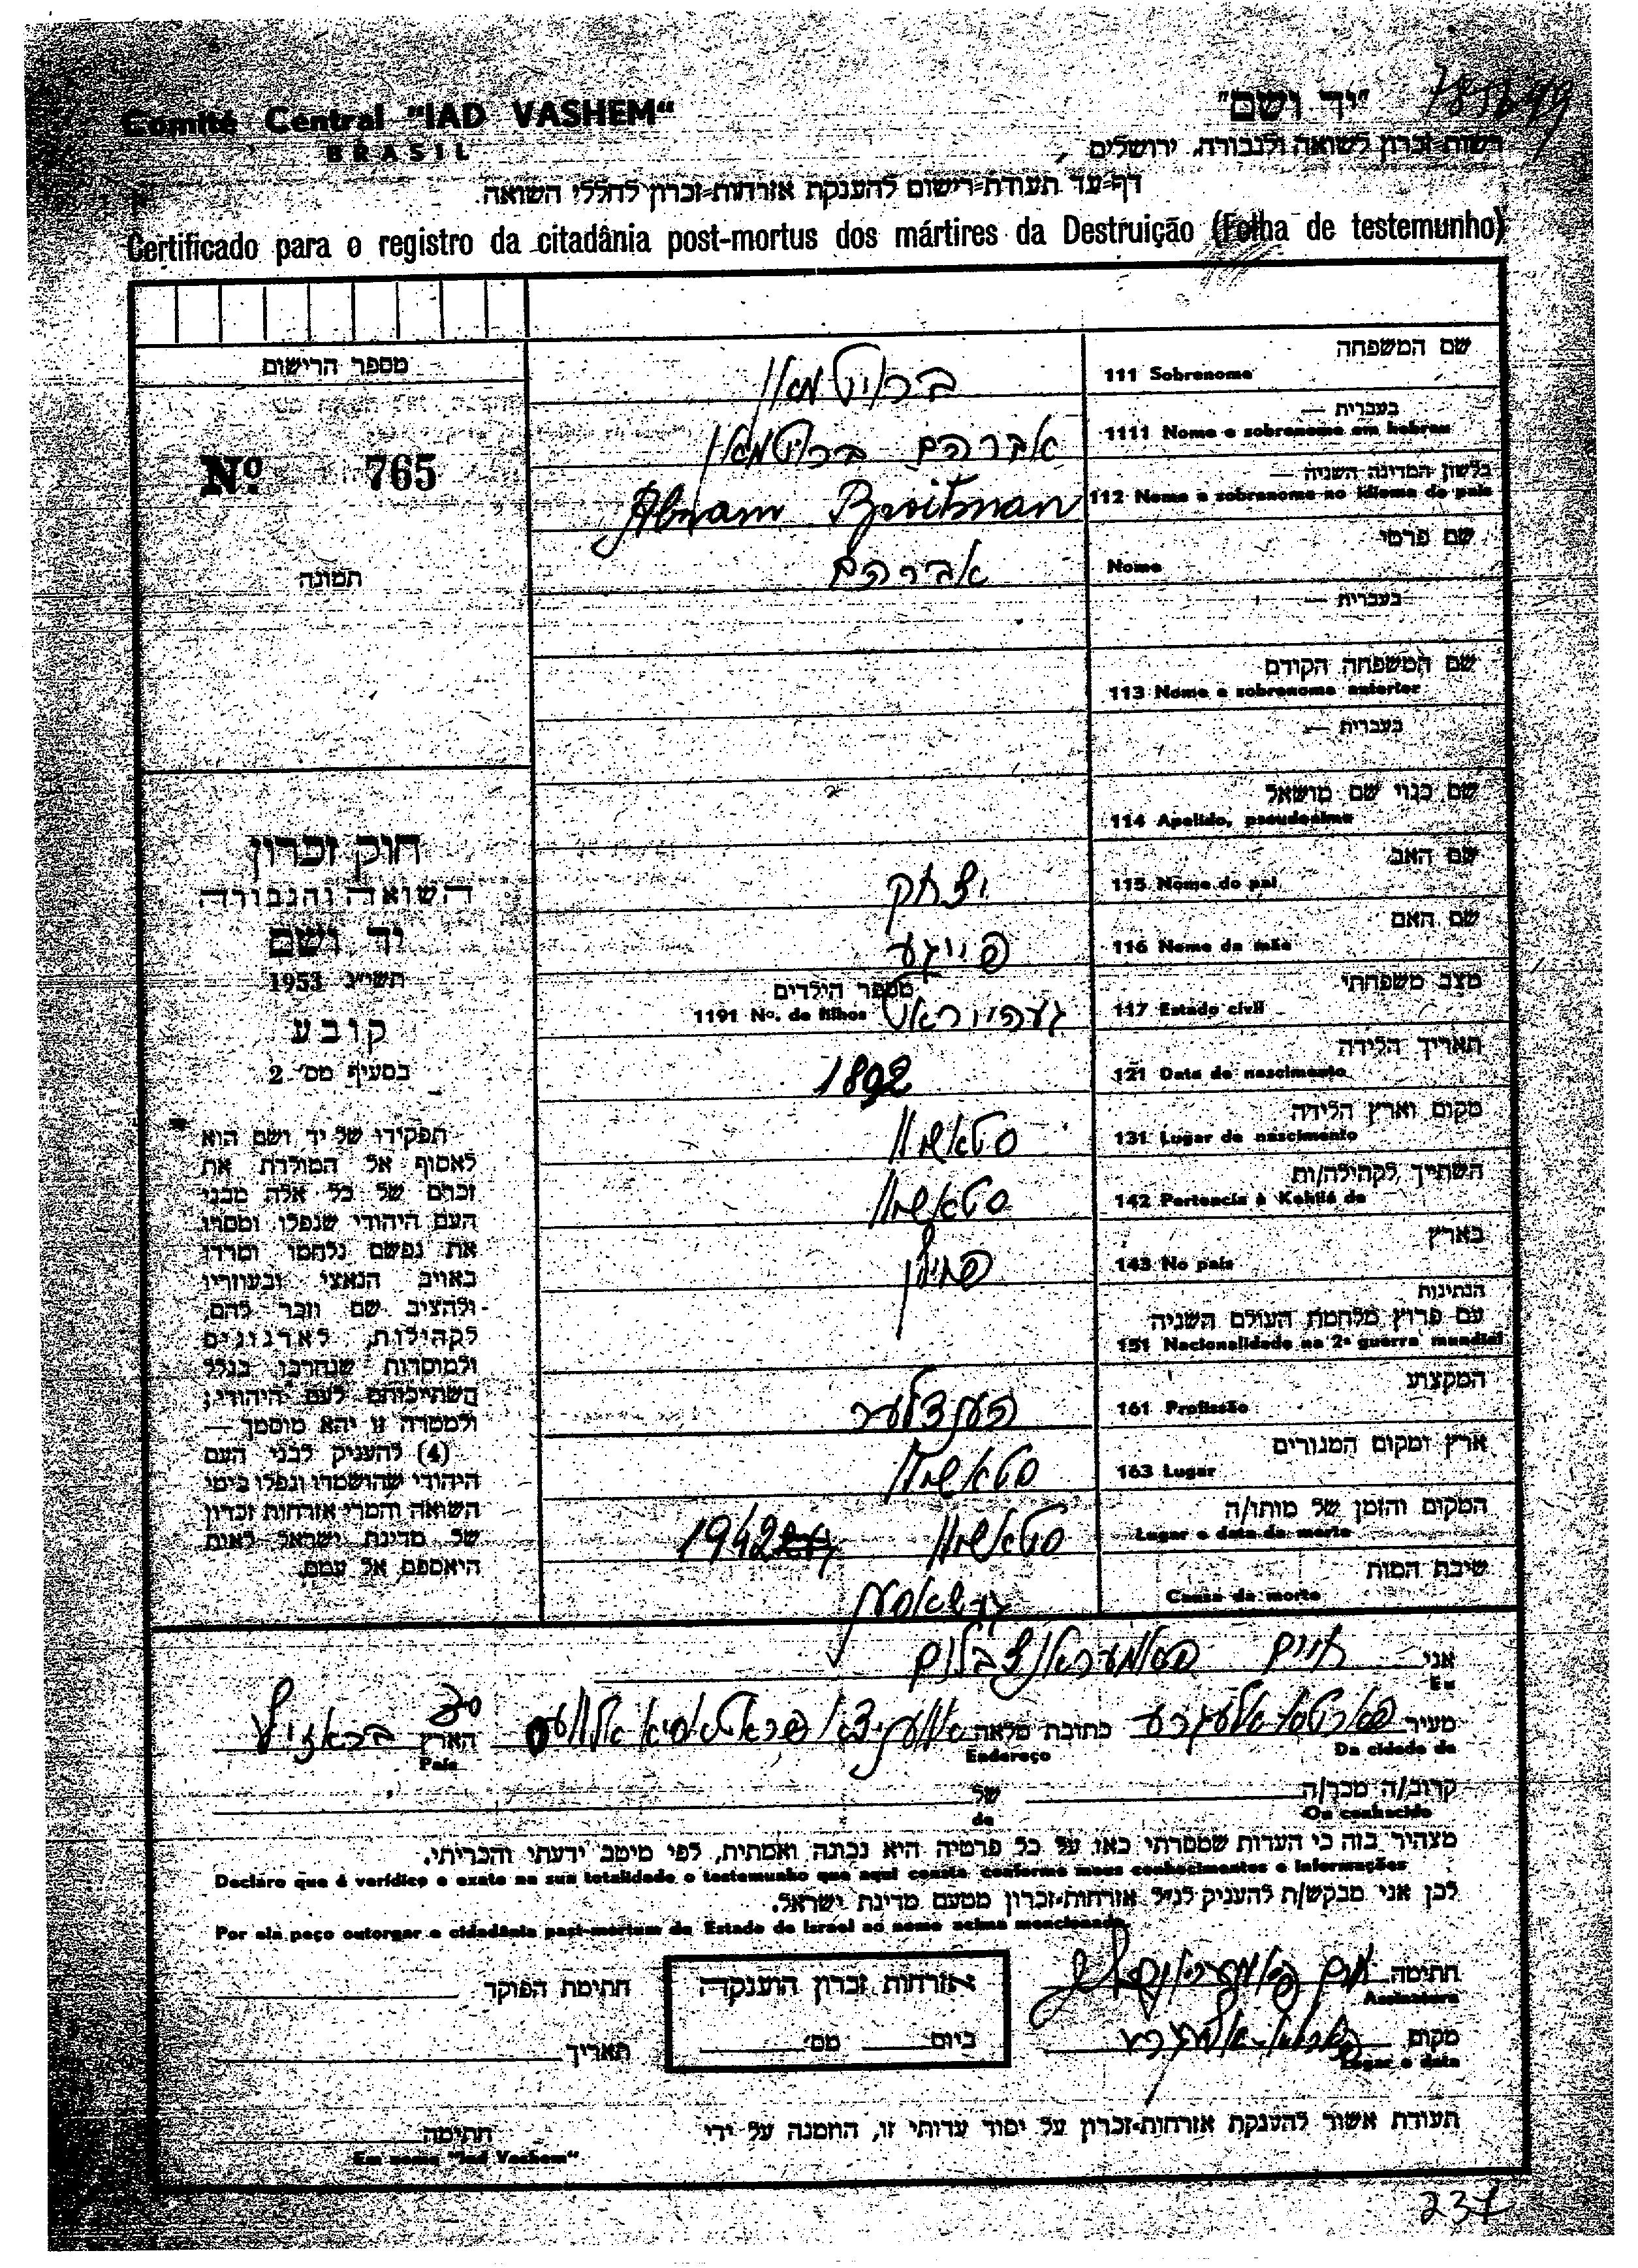 Comité Central "IAD VASHEM"
BRASIL
"יד ושם"
רשות-זכרון לשואה ולגבורה, ירושלים
דף-עד תעודת-רישום להענקת אזרחות-זכרון לחללי השואה.
Certificado para o registro da citadânia post-mortus dos mártires da Destruição (Folha de testemunho)
מספר הרישום
Nº 765
תמונה
שם המשפחה
111 Sobrenome
ברויטמאן
בעברית —
1111 Nome e sobrenome em hebreu
אברהם ברויטמאן
בלשון המדינה השניה —
112 Nome e sobrenome no idioma do pais
Abram Broitman
שם פרטי
Nome
אברהם
בעברית —
שם המשפחה הקודם
113 Nome e sobrenome anterior
בעברית —
שם כנוי שם מושאל
114 Apelido, pseudonimo
שם האב
115 Nome do pai
יצחק
שם האם
116 Nome da mãe
פייגע
מצב משפחתי
117 Estado civil
מספר הילדים
1191 Nº. de filhos
תאריך הלידה
121 Data de nascimento
1892
מקום וארץ הלידה
131 Lugar de nascimento
סטאשוו
השתייך לקהילה/ות
142 Pertencia à Kehilá de
סטאשוו
בארץ
143 No pais
פוילן
הנתינות
עם פרוץ מלחמת העולם השניה
151 Nacionalidade na 2ª guerra mundial
המקצוע
161 Profissão
הענדלער
ארץ ומקום המגורים
163 Lugar
סטאשוו
המקום והזמן של מותו/ה
Lugar e data da morte
סטאשוו 1942
שיבת המות
Causa da morte
חוק זכרון
השואה והגבורה
יד ושם
תשי"ג 1953
קובע
בסעיף מס' 2
תפקידו של יד ושם הוא
לאסוף אל המולדת את
זכרם של כל אלה מבני
העם היהודי שנפלו ומסרו
את נפשם נלחמו ומרדו
באויב הנאצי ובעוזריו
ולהציב שם וזכר להם,
לקהילות, לארגונים
ולמוסדות שנחרבו בגלל
השתייכותם לעם היהודי;
ולמטרה זו יהא מוסמך —
(4) להעניק לבני העם
היהודי שהושמדו ונפלו בימי
השואה והמרי אזרחות זכרון
של מדינת ישראל לאות
היאספם אל עמם.
אני חיים פאמעראנצבלום
Eu
מעיר פארטא אלעגרע כתובת מלאה הארץ בראזיל
Da cidade de Endereço Pais
קרוב/ה מכר/ה של
Ou conhecido de
מצהיר בזה כי העדות שמסרתי כאן על כל פרטיה היא נכונה ואמתית, לפי מיטב ידיעתי והכרתי.
Declaro que é verídico e exato na sua totalidade o testemunho que aqui consta conforme meus conhecimentos e informações
לכן אני מבקש/ת להעניק לנ"ל אזרחות-זכרון מטעם מדינת ישראל.
Por ela peço outorgar a cidadânia post-mortum do Estado de Israel ao nome acima mencionado.
חתימה
Assinatura
מקום פארטא-אלעגרע
Lugar e data
אזרחות זכרון הוענקה
ביום מס'
חתימת הפוקד
תאריך
תעודת אשור להענקת אזרחות-זכרון על יסוד עדותי זו, הוזמנה על ידי
חתימה
Em nome "Iad Vashem"
237